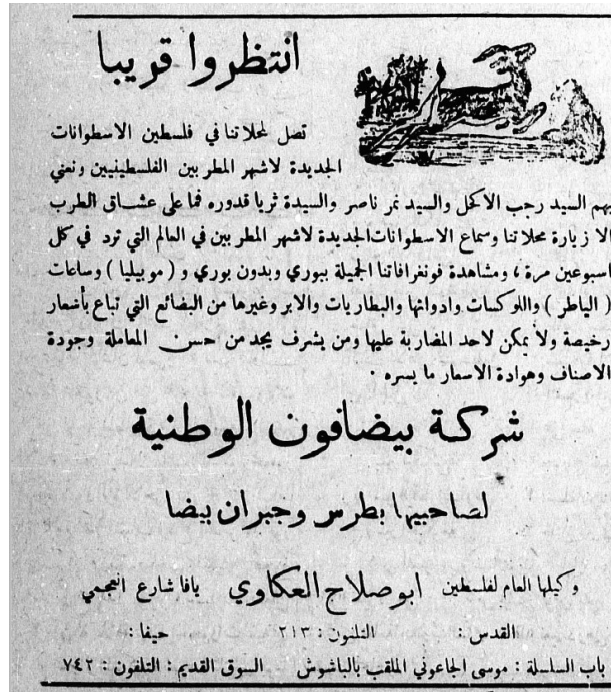 انتظروا قريبا
تصل لمحلاتنا في فلسطين الاسطوانات
الجديدة لاشهر المطربين الفلسطينيين ونعني
بهم السيد رجب الاكحل والسيد نمر ناصر والسيدة ثريا قدوره فما على عشاق الطرب
الا زيارة محلاتنا وسماع الاسطوانات الجديدة لاشهر المطربين في العالم التي ترد في كل
اسبوعين مرة ، ومشاهدة فونغرافاتنا الجميلة ببوري وبدون بوري و ( موبيليا ) وساعات
( الياطر ) واللوكسات وادواتها والبطاريات والابر وغيرها من البضائع التي تباع بأسعار
رخيصة ولا يمكن لاحد المضاربة عليها ومن يشرف يجد من حسن المعاملة وجودة
الاصناف وهوادة الاسعار ما يسره ·
شركة بيضافون الوطنية
لصاحبيها بطرس وجبران بيضا
وكيلها العام لفلسطين ابو صلاح العكاوي يافا شارع العجمي
القدس : التلفون : ٢١٣ حيفا :
باب السلسلة : موسى الجاعوني الملقب بالباشوش السوق القديم : التلفون : ٧٤٢